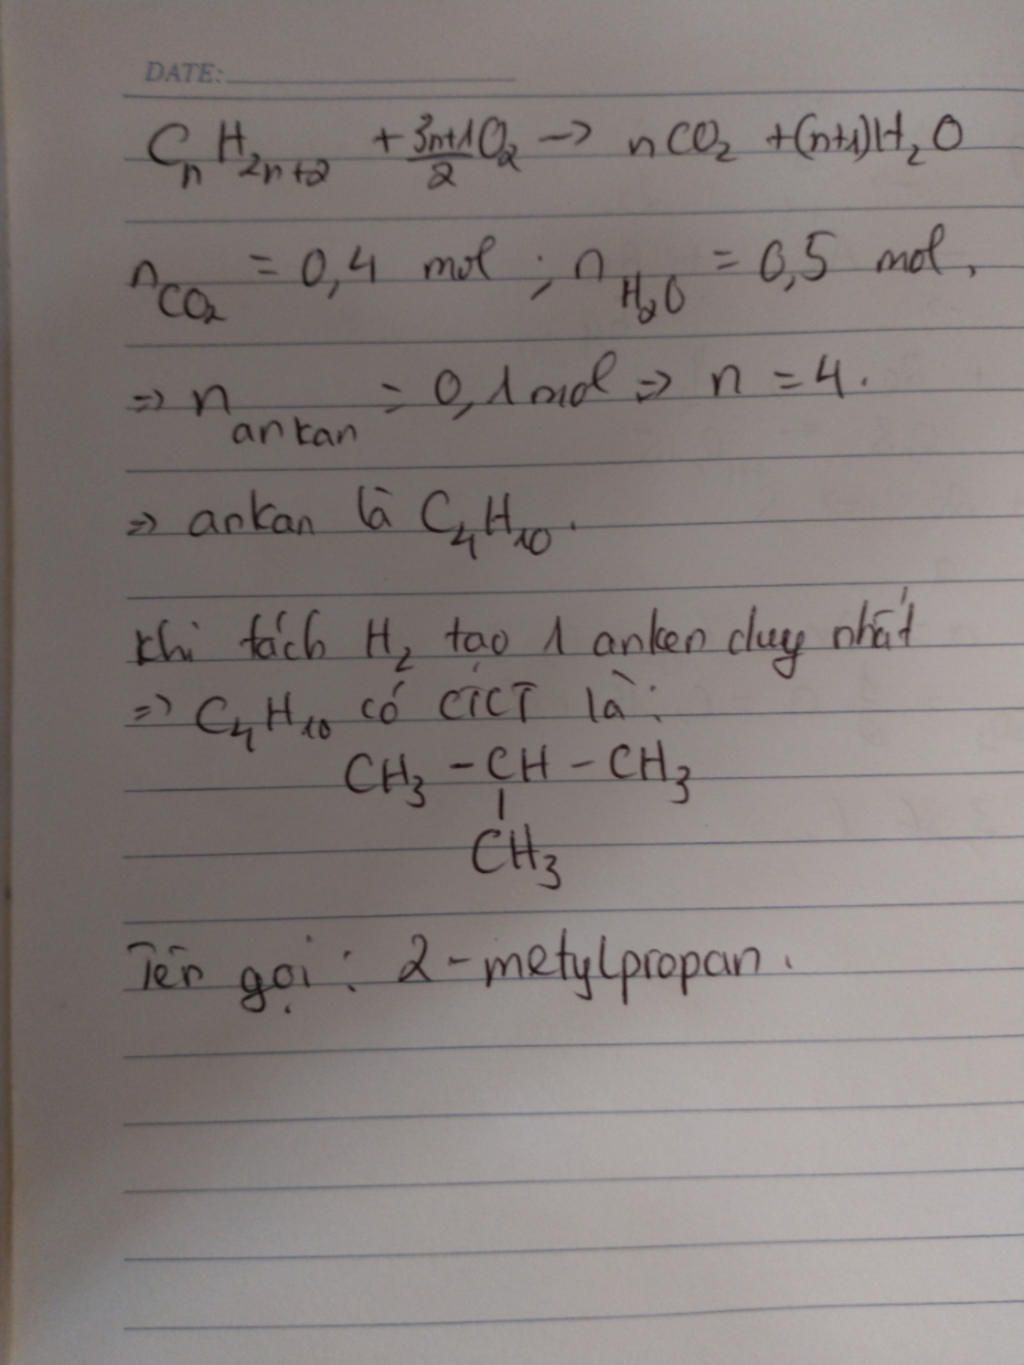 DATE:
CₙH₂ₙ₊₂ + 3n+1/2 O₂ -> nCO₂ + (n+1)H₂O
n CO₂ = 0,4 mol ; n H₂O = 0,5 mol.
=> n ankan = 0,1 mol => n = 4.
=> ankan là C₄H₁₀.
Khi tách H₂ tạo 1 anken duy nhất
=> C₄H₁₀ có CTCT là:
CH₃ - CH - CH₃
|
CH₃
Tên gọi: 2-metylpropan.